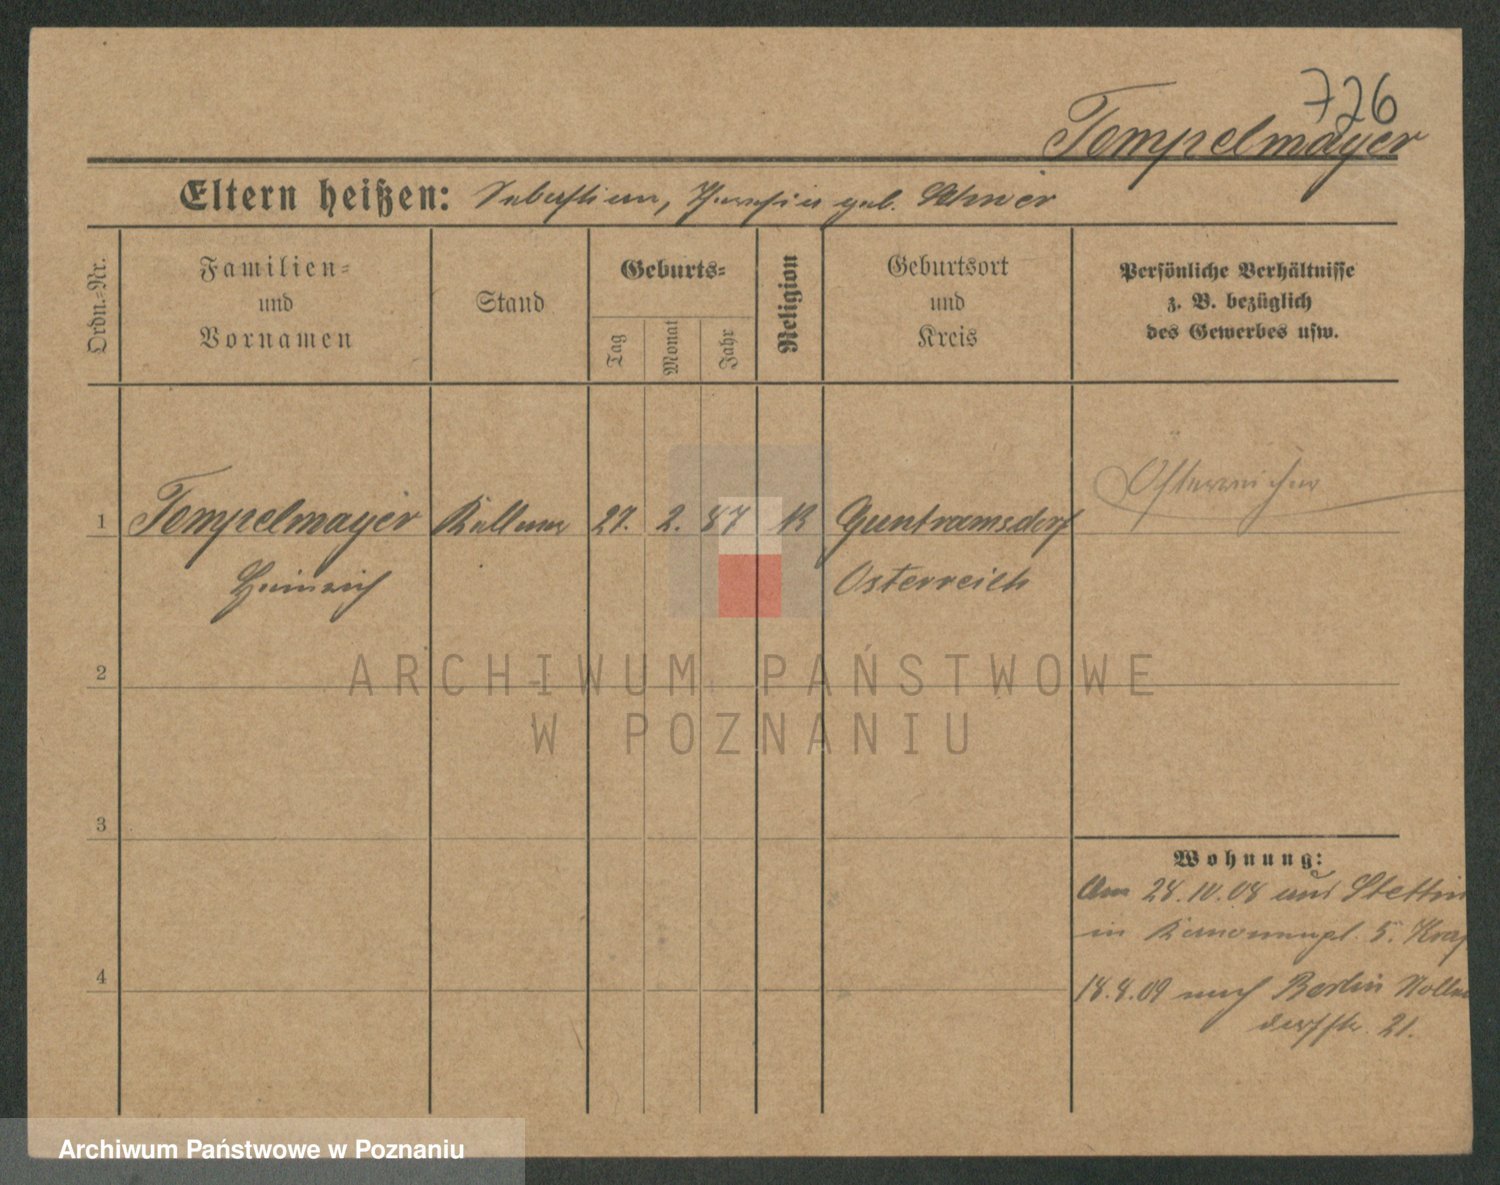 726
Tempelmayer
Eltern heißen: Sebastian, Theresia geb. Schwer
Ordn.-Nr.
Familien-
und
Vornamen
Stand
Geburts-
Tag
Monat
Jahr
Religion
Geburtsort
und
Kreis
Persönliche Verhältnisse
z. B. bezüglich
des Gewerbes usw.
1 Tempelmayer Kellner 27. 2. 87 K Guntramsdorf Österreicher
Heinrich Österreich
2
3
4
Wohnung:
Am 28.10.08 aus Stettin
in 5.
18.8.09 nach Berlin
dorfstr. 21.
ARCHIWUM PAŃSTWOWE
W POZNANIU
Archiwum Państwowe w Poznaniu